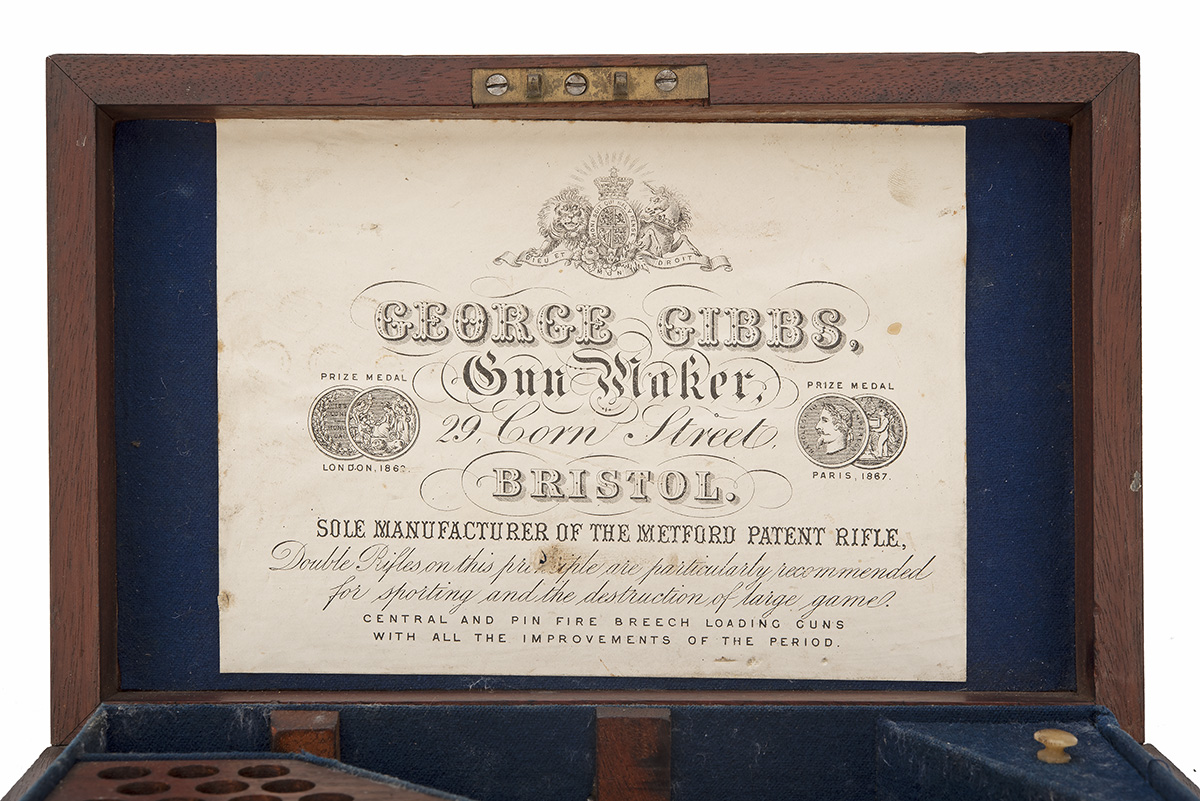 DIEU ET MON DROIT
GEORGE GIBBS,
Gun Maker,
29, Corn Street,
BRISTOL.
PRIZE MEDAL
LONDON, 186
PRIZE MEDAL
PARIS, 1867.
SOLE MANUFACTURER OF THE METFORD PATENT RIFLE,
Double Rifles, on this principle, are particularly recommended
for sporting and the destruction of large game.
CENTRAL AND PIN FIRE BREECH LOADING GUNS
WITH ALL THE IMPROVEMENTS OF THE PERIOD.